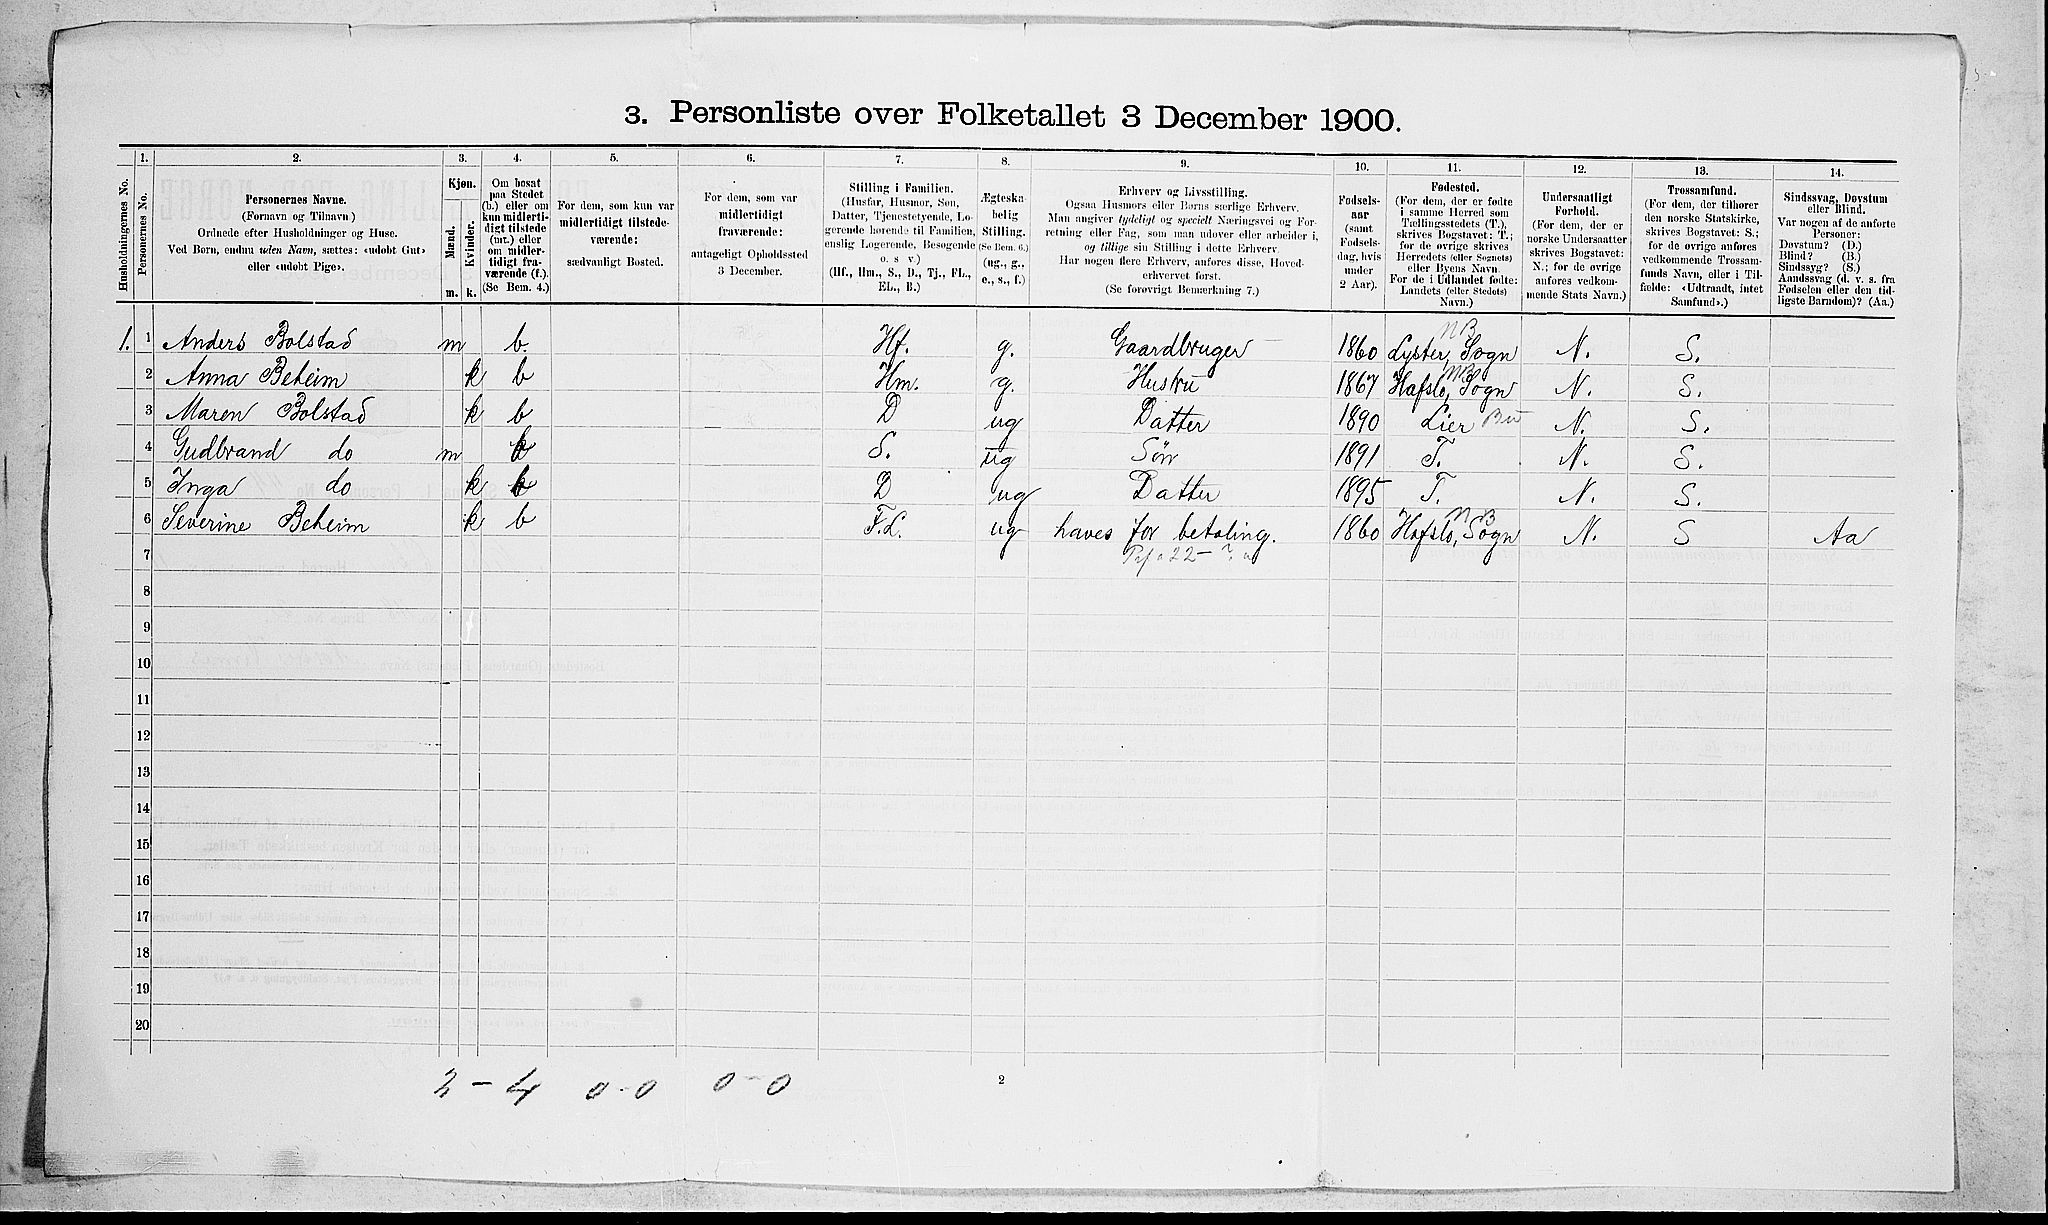 3. Personliste over Folketallet 3 December 1900.
Husholdningernes No.
1.
Personernes No.
2.
Personernes Navne.
(Fornavn og Tilnavn.)
Ordnede efter Husholdninger og Huse.
Ved Børn, endnu uden Navn, sættes: «udøbt Gut»
eller «udøbt Pige».
3.
Kjøn.
Mænd.
Kvinder.
m. k.
4.
Om bosat
paa Stedet
(b.) eller om
kun midlerti-
digt tilstede
(mt.) eller
om midler-
tidigt fra-
værende (f.).
(Se Bem. 4.)
5.
For dem, som kun var
midlertidigt tilstede-
værende:
sædvanligt Bosted.
6.
For dem, som var
midlertidigt
fraværende:
antageligt Opholdssted
3 December.
7.
Stilling i Familien.
(Husfar, Husmor, Søn,
Datter, Tjenestetyende, Lo-
gerende hørende til Familien,
enslig Logerende, Besøgende
o. s v.)
(Hf., Hm., S., D., Tj., FL.,
EL., B.)
8.
Ægteska-
belig
Stilling.
(Se Bem. 6.)
(ug., g.,
e., s., f.)
9.
Erhverv og Livsstilling.
Ogsaa Husmors eller Børns særlige Erhverv.
Man angiver tydeligt og specielt Næringsvei og For-
retning eller Fag, som man udøver eller arbeider i,
og tillige sin Stilling i dette Erhverv.
Har nogen flere Erhverv, anføres disse, Hoved-
erhvervet først.
(Se forøvrigt Bemærkning 7.)
10.
Fødsels-
aar
(samt
Fødsels-
dag, hvis
under
2 Aar).
11.
Fødested.
(For dem, der er fødte
i samme Herred som
Tællingsstedets (T.),
skrives Bogstavet: T.;
for de øvrige skrives
Herredets (eller Sognets)
eller Byens Navn.
For de i Udlandet fødte:
Landets (eller Stedets)
Navn.)
12.
Undersaatligt
Forhold.
(For dem, der er
norske Undersaatter
skrives Bogstavet:
N.; for de øvrige
anføres vedkom-
mende Stats Navn.)
13.
Trossamfund.
(For dem, der tilhører
den norske Statskirke,
skrives Bogstavet: S.;
for de øvrige anføres
vedkommende Trossam-
funds Navn, eller i Til-
fælde: «Udtraadt, intet
Samfund».)
14.
Sindssvag, Døvstum
eller Blind.
Var nogen af de anførte
Personer:
Døvstum? (D.)
Blind? (B.)
Sindssyg? (S.)
Aandssvag (d. v. s. fra
Fødselen eller den tid-
ligste Barndom)? (Aa.)
N B
1. 1 Anders Bolstad m b. Hf. g. Gaardbruger 1860 Lyster, Sogn N. S.
NB
2 Anna Beheim k b Hm. g. Hustru 1867 Hafslo, Sogn N. S.
3 Maren Bolstad k b D ug Datter 1890 Lier Bu N. S.
4 Gudbrand do m b S. ug Søn 1891 T. N. S.
5 Inga do k b D ug Datter 1895 T. N. S.
N B
6 Severine Beheim k b F.L. ug haves for betaling. 1860 Hafslo, Sogn N. S Aa
7
8
9
10
11
12
13
14
15
16
17
18
19
20
2 – 4 0-0 0-0
2